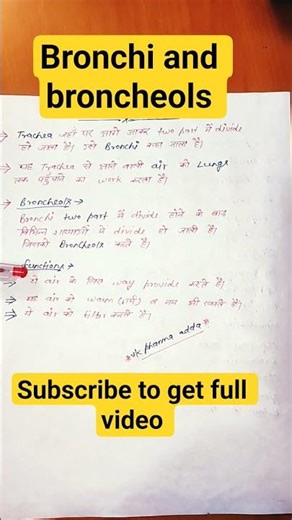 Bronchi and
broncheols
→ Trachea जहाँ पर आगे जाकर two part में divide
हो जाता है। उसे Bronchi कहा जाता है।
→ यह Trachea से आने वाली air को Lungs
तक पहुँचाने का work करता है।
→ Broncheols →
Bronchi two part में divide होने के बाद
विभिन्न शाखाओं में divide हो जाती है।
जिसको Broncheols कहते है।
functions →
→ ये air के लिए way provide करते है।
⇒ यह air को warm (गर्म) व नम भी करते है।
⇒ ये air को filter करते है।
*vk pharma adda*
Subscribe to get full
video